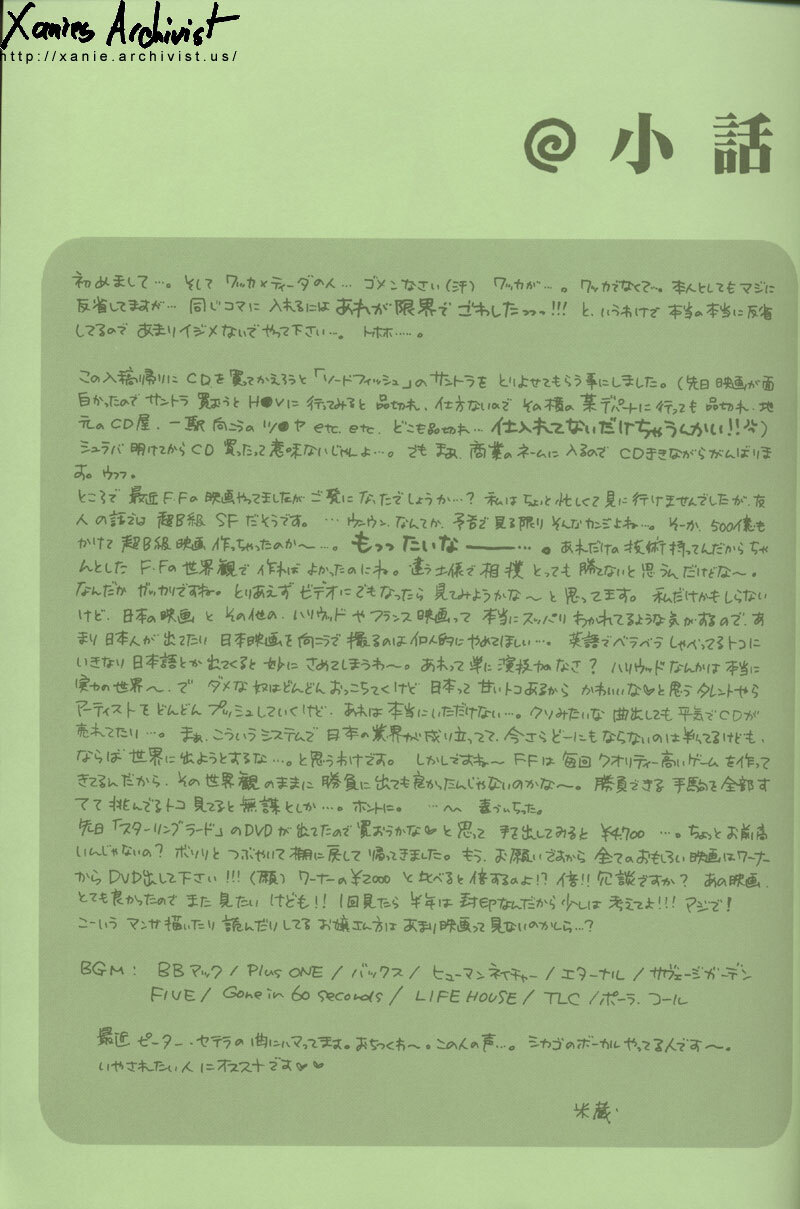 Xanies Archivist
http://xanie.archivist.us/
@ 小話
初めまして…。そして ワッカ×ティーダの人… ゴメンなさい(汗) ワッカが…。ワッカでなくて…。本人としてもマジに
反省してますが… 同じコマに 入れるには あれが限界で ごわしたっっっ!!! と、いうわけで 本当の本当に反省
してるので あまりイジメないでやって下さい…。 トホホ……。
この入稿帰りに CDを買ってかえろうと「ソードフィッシュ」のサントラを とりよせてもらう事にしました。(先日 映画が面
白かったので サントラ 買おうと H●Vに行ってみると 品切れ、仕方ないので その横の 某デパートに行っても 品切れ、地
元のCD屋、一駅 向こうの ツ●ヤ etc. etc. どこも品切れ… 仕入れてないだけちゃうんかい!!)
シュラバ 明けてからCD 買ったって意味ないじゃんよ…。でも まぁ、商業のネームに 入るので CDききながらがんばりま
す。ウフフ。
ところで 最近 F.Fの 映画やってましたが ご覧に なったでしょうか…? 私はちょっと忙しくて見に行けませんでしたが、友
人の話では 超B級 SFだそうです。 …ウンウン、なんてか、予告で見る限り そんなカンジよね…。そーか、500億も
かけて 超B級映画 作っちゃったのか〜…。もっったいな———…。あれだけの技術持ってんだからちゃ
んとした F・Fの世界観で 作れば よかったのにね。違う土俵で 相撲 とっても 勝てないと思うんだけどな〜。
なんだか ガッカリですね。とりあえず ビデオにでもなったら 見てみようかな〜 と思ってます。私だけかもしらない
けど、日本の映画 と その他の、ハリウッド やフランス映画って 本当にスッパリ わかれてるような気がするので、あ
まり 日本人が 出てたり 日本映画を向こうで 撮るのは 個人的にやめてほしい…。 英語でベラベラ しゃべってるトコに
いきなり 日本語とか 出てくると 妙に さめてしまうわ〜。あれって 単に 演技力のなさ? ハリウッドなんかは 本当に
実力の世界〜、で ダメな奴はどんどんおっこちてくけど 日本って 甘いトコあるから かわいいな♥と思う タレントやら
アーティストを どんどん プッシュしていくけど、あれは本当にいただけない…。クソみたいな 曲出しても 平気でCDが
売れてたり…。 まぁ、こういうシステムで 日本の業界が成り立ってて、今さらどーにもならないのは判ってるけども、
ならば 世界に出ようとするな…。と思うわけです。 しかしですね〜 FFは 毎回 クオリティー高いゲーム を作って
きてるんだから、その世界観 のままに 勝負に 出ても良かったんじゃないのかな〜。 勝負できる 手駒を全部す
てて 挑んでるトコ 見てると 無謀としか…。ホントに。 …へへ 書いちった。
先日「スターリングラード」のDVDが 出てたので 買おうかな♥ と思って 手を出してみると ¥4700 …。ちょっとお前高
いんじゃないの? ボソリと つぶやいて 棚に戻して 帰ってきました。もう、お願いですから 全てのおもしろい映画はワーナー
からDVD出して下さい!!!(願) ワーナーの¥2000 と比べると 倍するのよ!? 倍!! 冗談ですか? あの映画、
とても良かったので また見たい けども!! 1回見たら 半年は 封印なんだから 少しは 考えてよ!!! マジで!
こーいう マンガ 描いたり 読んだりしてる お嬢さん方は あまり映画って 見ないのかしら…?
BGM: BBマック / Plus ONE / バックス / ヒューマンネイチャー / エターナル / サヴェージガーデン
FIVE / Gone in 60 seconds / LIFE HOUSE / TLC / ポーラ.コール
最近 ピーター・セテラの曲にハマってます。おちつくわ〜。この人の声…。シカゴのボーカル やってる人です〜。
いやされたい人 にオススメです♥♥
米蔵.